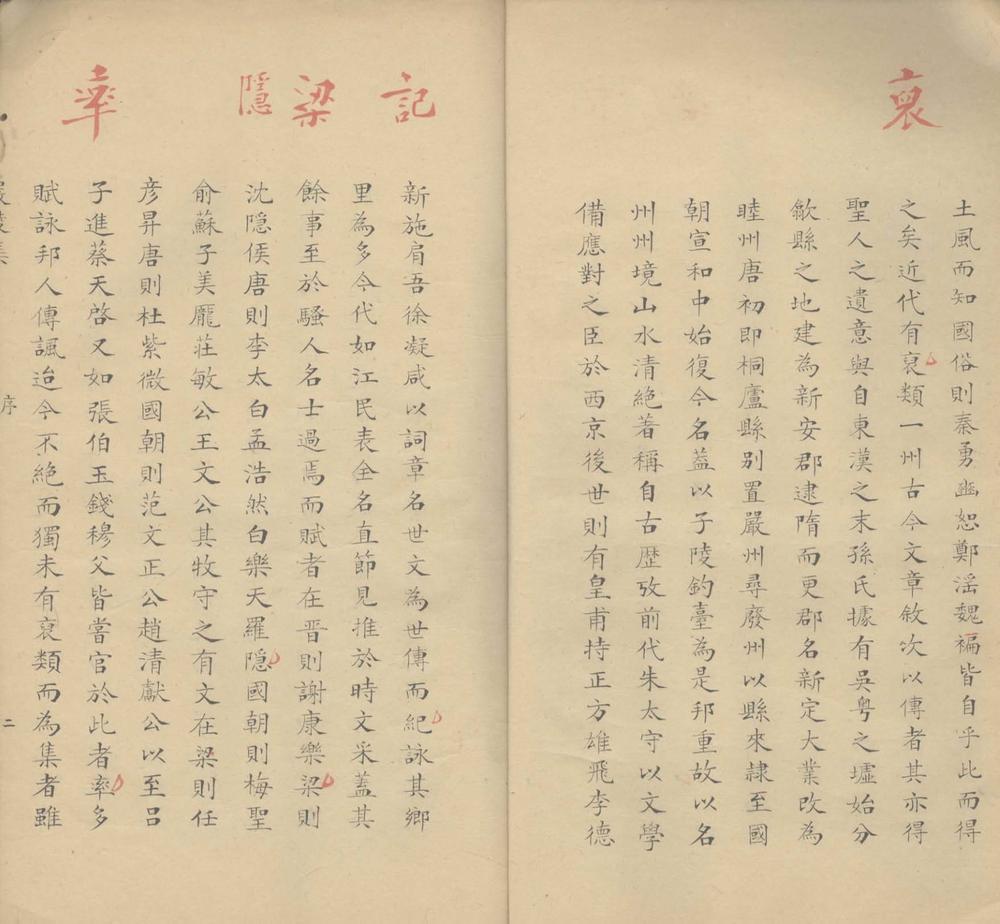 裒
土風而知國俗則秦勇幽恕鄭滛魏褊皆自乎此而得
之矣近代有裒類一州古今文章敘次以傳者其亦得
聖人之遺意與自東漢之末孫氏據有吳粤之墟始分
歙縣之地建為新安郡逮隋而更郡名新定大業改為
睦州唐初即桐廬縣别置嚴州尋廢州以縣來隷至國
朝宣和中始復今名葢以子陵釣臺為是邦重故以名
州州境山水清絶著稱自古歴攷前代朱太守以文學
備應對之臣於西京後世則有皇甫持正方雄飛李德
記
梁
隱
率
新施肩吾徐凝咸以詞章名世文為世傳而紀詠其鄉
里為多今代如江民表全名直節見推於時文采蓋其
餘事至於騷人名士過焉而賦者在晋則謝康樂梁則
沈隠侯唐則李太白孟浩然白樂天羅隠國朝則梅聖
俞蘇子美龎莊敏公王文公其牧守之有文在梁則任
彦昇唐則杜紫微國朝則范文正公趙清獻公以至吕
子進蔡天啓又如張伯玉錢穆父皆嘗官於此者率多
賦詠邦人傳諷迨今不絶而獨未有裒類而為集者雖
序
二